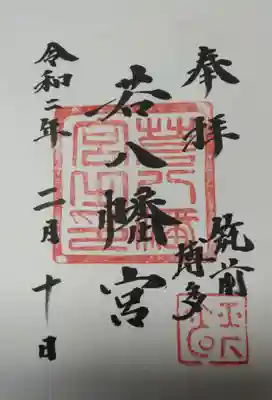 奉拝
筑前
博多
若八幡宮
令和二年
二月
十日